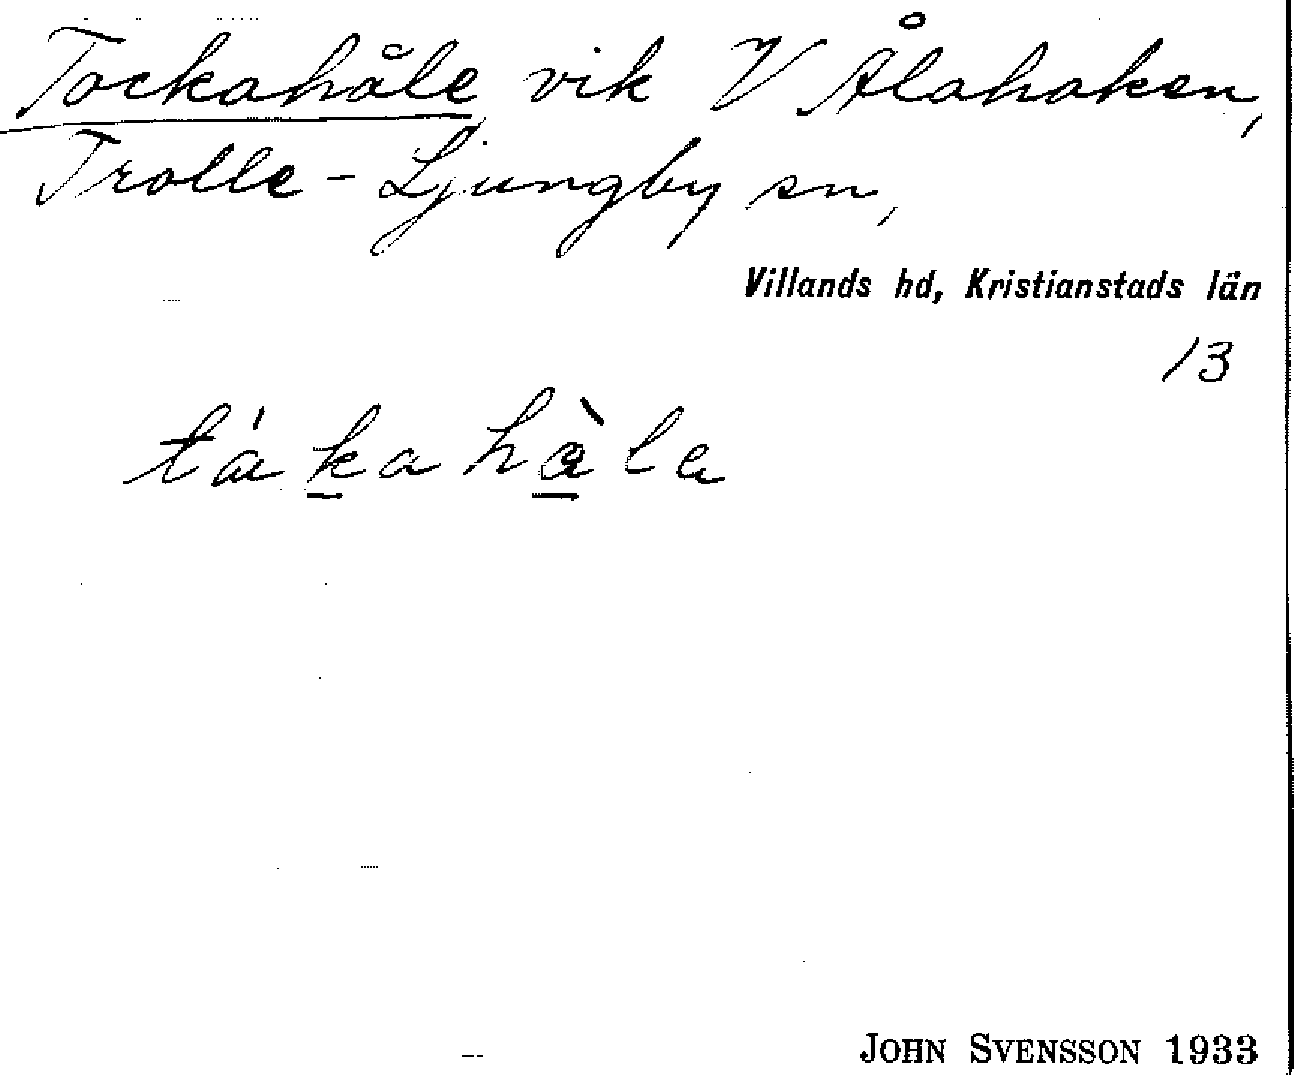 Tockahåle vik V Ålahaken,
Trolle-Ljungby sn,
Villands hd, Kristianstads län
13
tákahàla
JOHN SVENSSON 1933